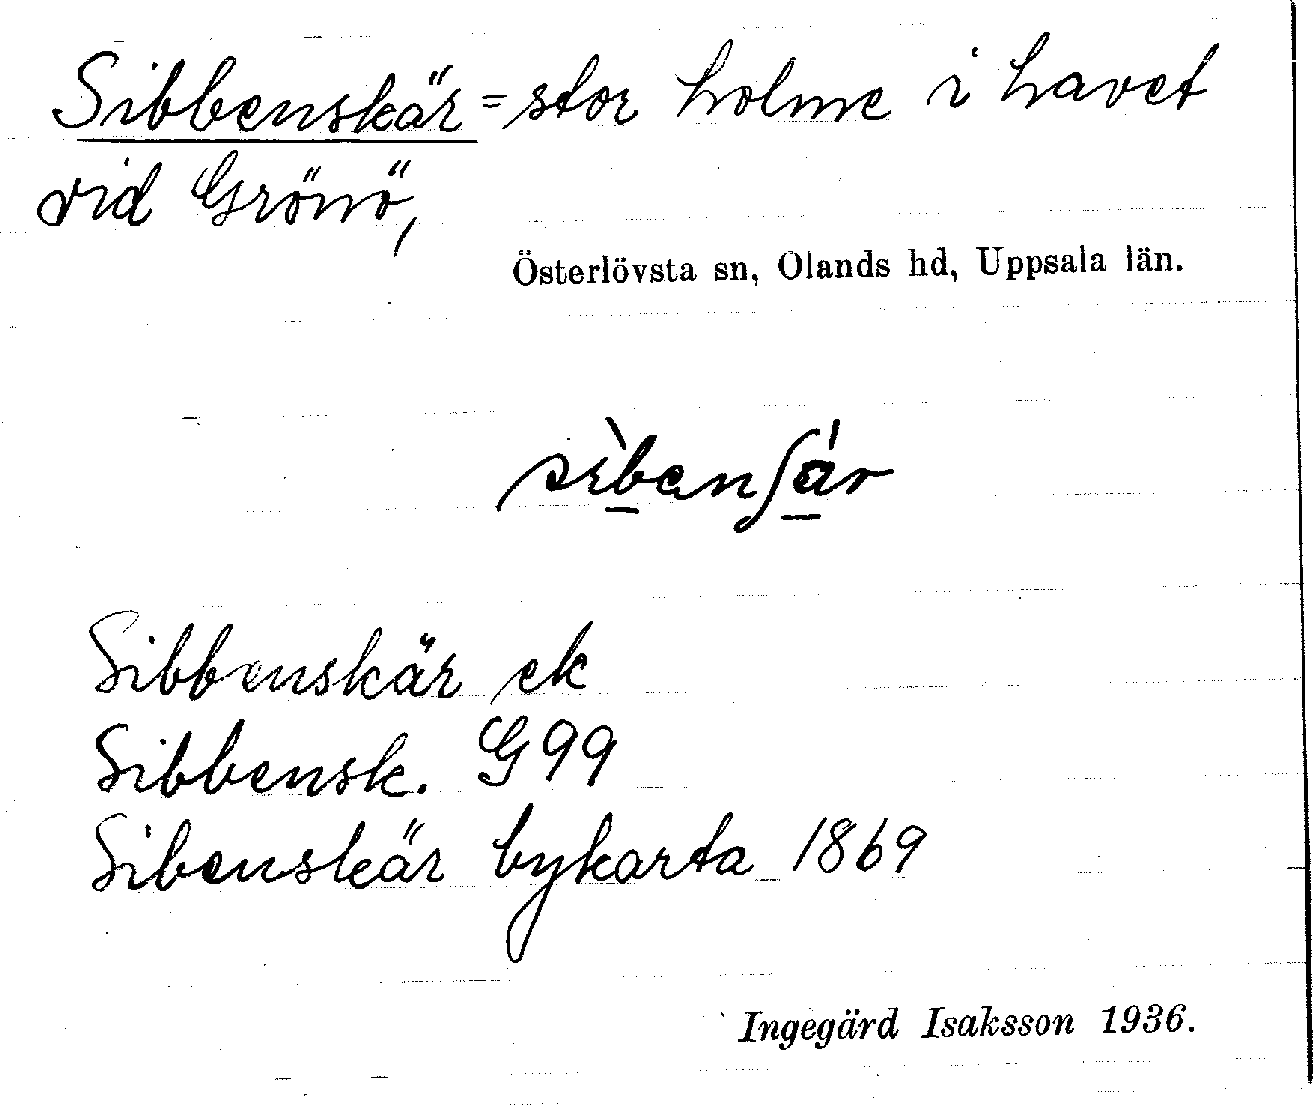 Sibbenskär = stor holme i havet
vid Grönö,
Österlövsta sn, Olands hd, Uppsala län.
sìbenʃár
Sibbenskär ek
Sibbensk. G99
Sibenskär bykarta 1869
Ingegärd Isaksson 1936.